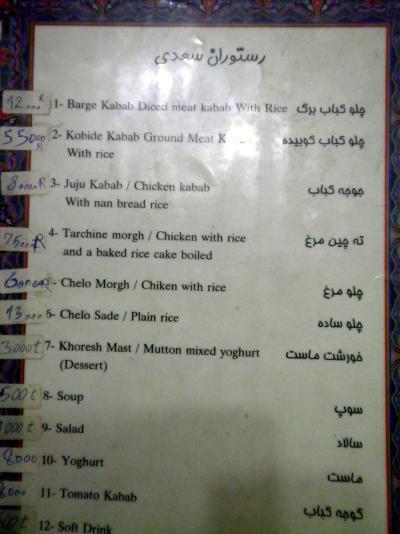 رستوران سعدی
1- Barge Kabab Diced meat kabab With Rice چلو کباب برگ
55000 R 2- Kobide Kabab Ground Meat چلو کباب کوبیده
With rice
3- Juju Kabab / Chicken kabab جوجه کباب
With nan bread rice
4- Tarchine morgh / Chicken with rice ته چین مرغ
and a baked rice cake boiled
- Chelo Morgh / Chiken with rice چلو مرغ
6- Chelo Sade / Plain rice چلو ساده
3000t 7- Khoresh Mast / Mutton mixed yoghurt خورشت ماست
(Dessert)
500 t 8- Soup سوپ
000 t 9- Salad سالاد
8000 10- Yoghurt ماست
11- Tomato Kabab گوجه کباب
12- Soft Drink